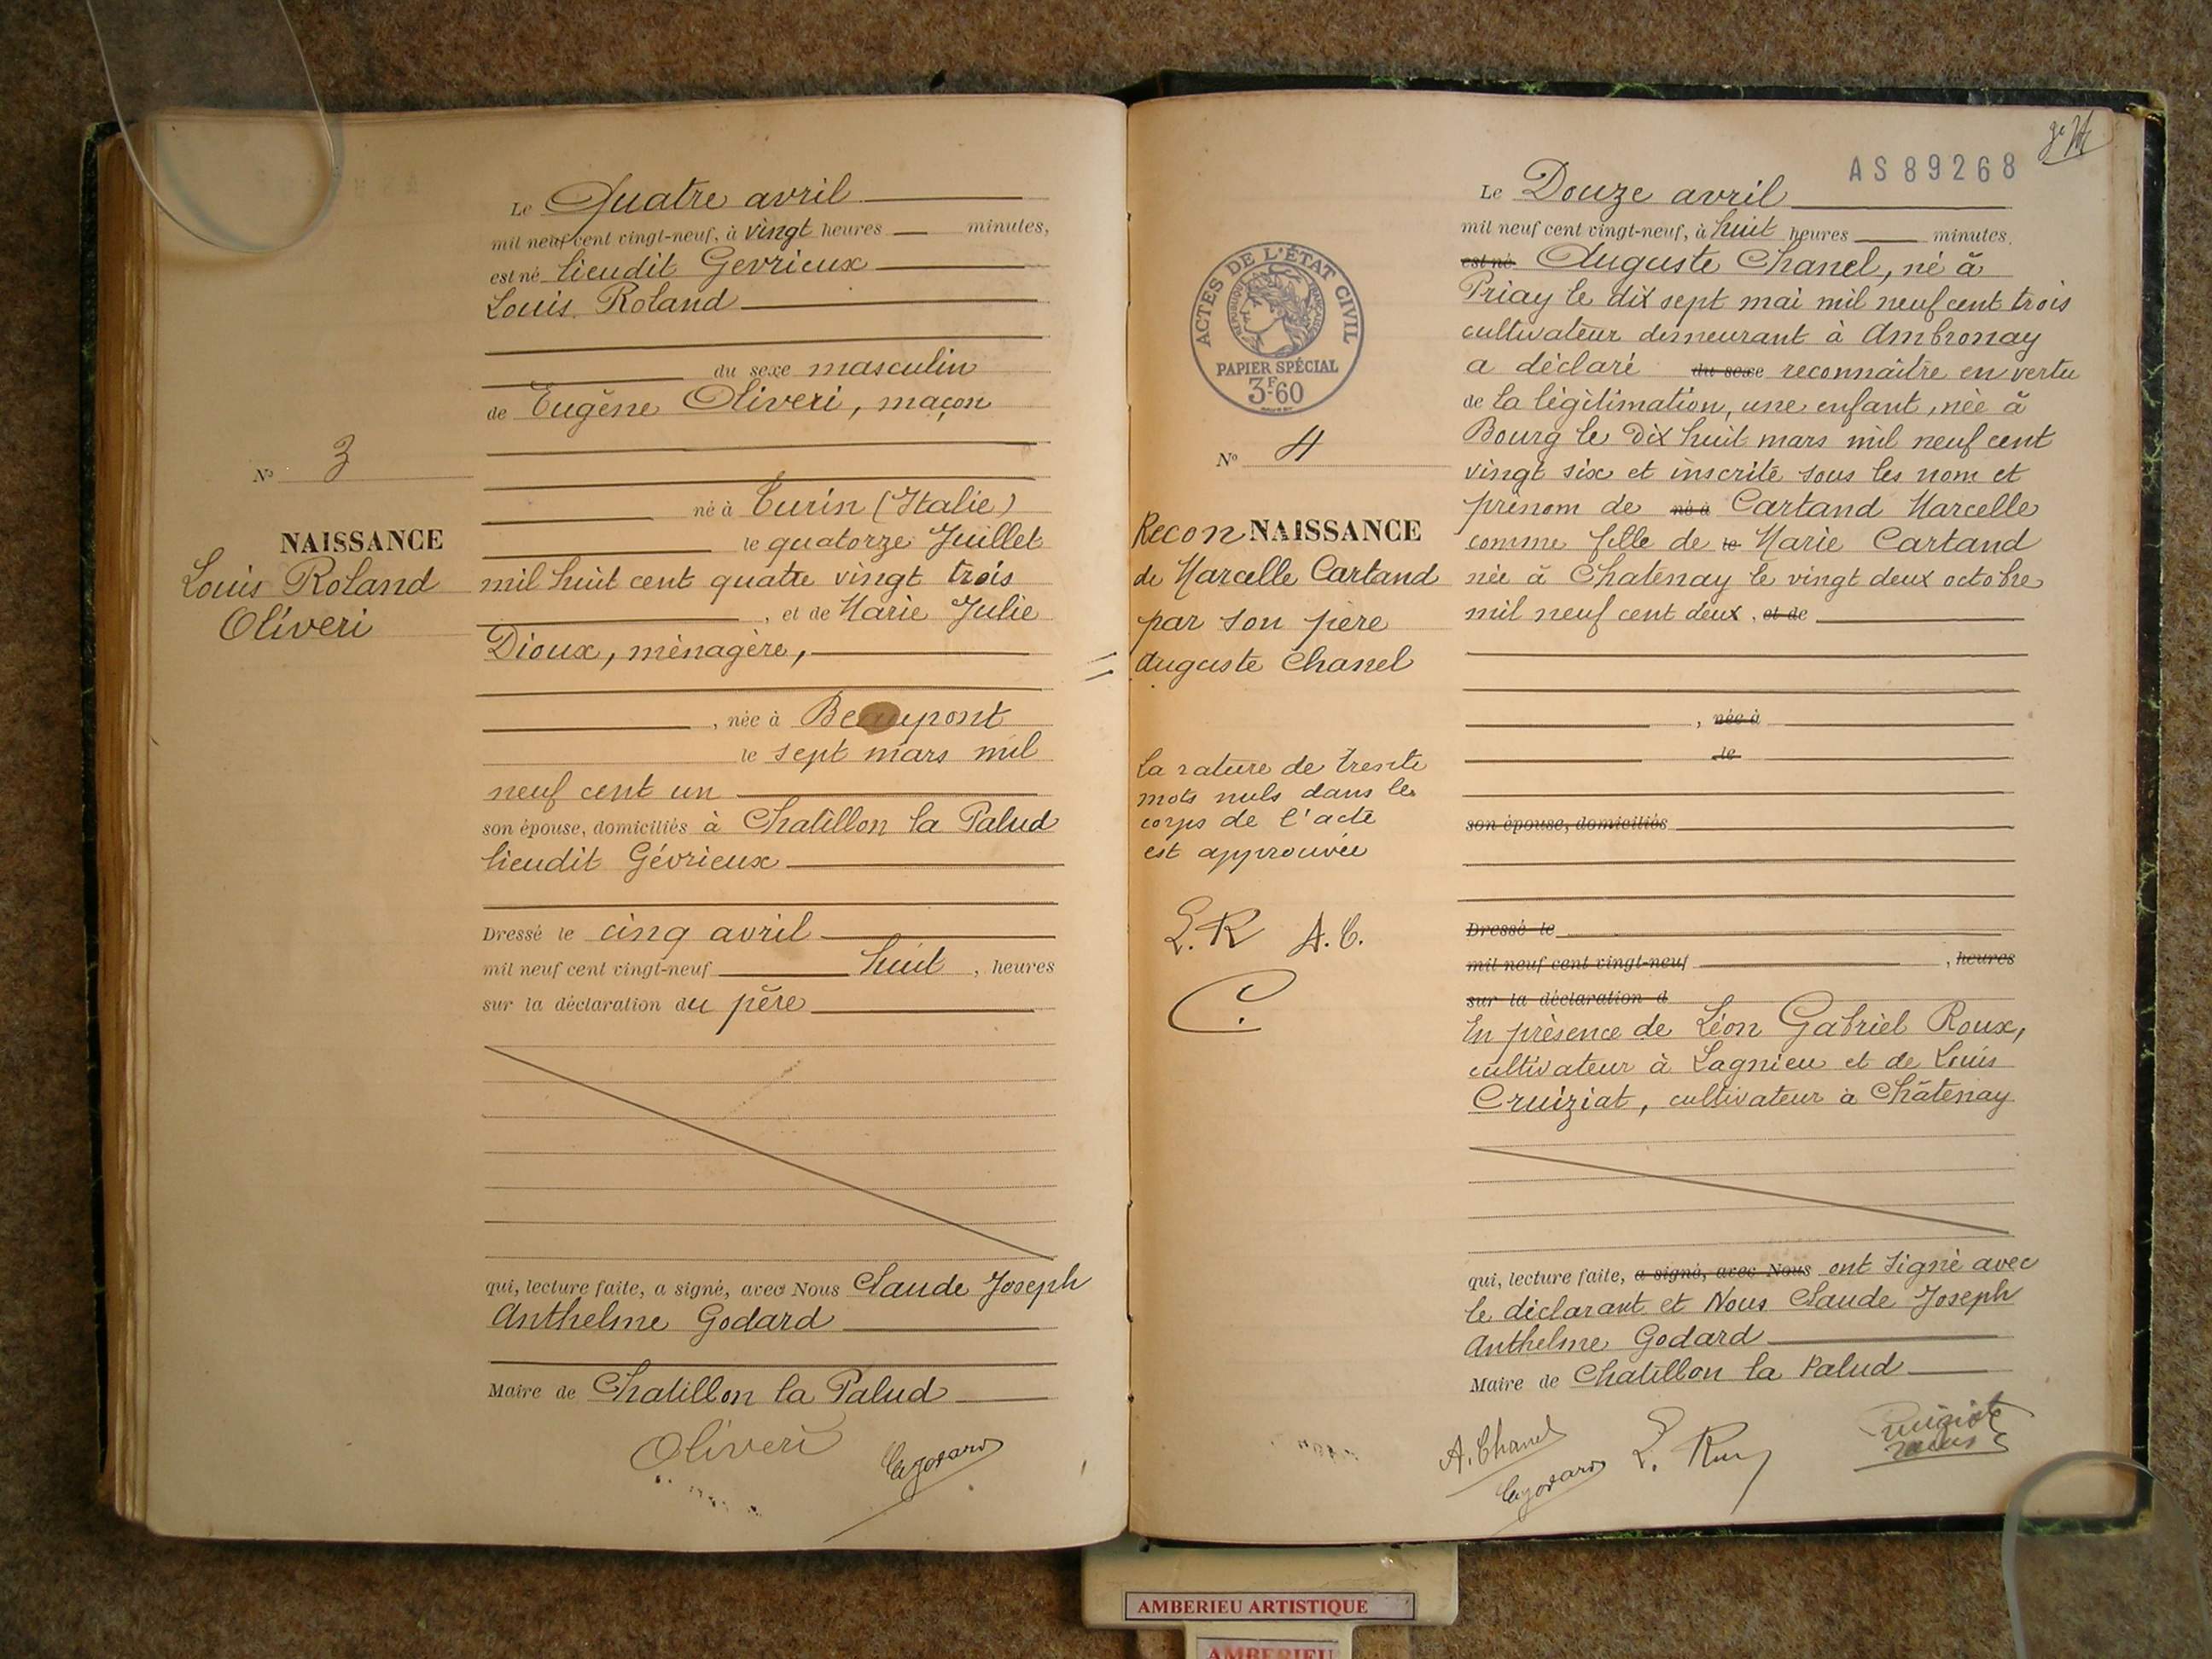 Le Quatre avril
mil neuf cent vingt-neuf, à vingt heures minutes,
est né lieudit Gevrieux
Louis Roland
du sexe masculin
de Eugène Oliveri, maçon
N° 3
né à Turin (Italie)
NAISSANCE
le quatorze Juillet
Louis Roland
Oliveri
mil huit cent quatre vingt trois
, et de Marie Julie
Dioux, ménagère,
, née à Beaupont
le sept mars mil
neuf cent un
son épouse, domiciliés à Chatillon la Palud
lieudit Gévrieux
Dressé le cinq avril
mil neuf cent vingt-neuf huit, heures
sur la déclaration du père
qui, lecture faite, a signé, avec Nous Claude Joseph
Anthelme Godard
Maire de Chatillon la Palud
Oliveri
AS89268
Le Douze avril
mil neuf cent vingt-neuf, à huit heures minutes,
est né Auguste Chanel, né à
Priay le dix sept mai mil neuf cent trois
cultivateur demeurant à Ambronay
a déclaré du sexe reconnaître en vertu
de la légitimation, une enfant, née à
Bourg le dix huit mars mil neuf cent
vingt six et inscrite sous les nom et
prénom de né à Cartand Marcelle
comme fille de le Marie Cartand
née à Chatenay le vingt deux octobre
mil neuf cent deux. et de
, née à
le
son épouse, domiciliés
Dressé le
mil neuf cent vingt-neuf , heures
sur la déclaration d
En présence de Léon Gabriel Roux,
cultivateur à Lagnieu et de Louis
Cruiziat, cultivateur à Châtenay
qui, lecture faite, a signé, avec Nous ont signé avec
le déclarant et Nous Claude Joseph
Anthelme Godard
Maire de Chatillon la Palud
ACTES DE L'ÉTAT CIVIL
RÉPUBLIQUE FRANÇAISE
PAPIER SPÉCIAL
3F60
N° 4
ReconNAISSANCE
de Marcelle Cartand
par son père
Auguste Chanel
la rature de trente
mots nuls dans le
corps de l'acte
est approuvée
L.R A.C.
C.
A. Chanel
AMBERIEU ARTISTIQUE
AMBERIEU